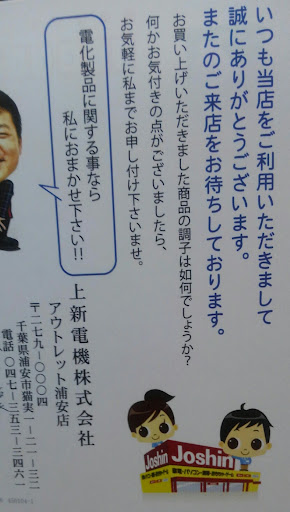 いつも当店をご利用いただきまして
誠にありがとうございます。
またのご来店をお待ちしております。
お買い上げいただきました商品の調子は如何でしょうか?
何かお気付きの点がございましたら、
お気軽に私までお申し付け下さいませ。
電化製品に関する事なら
私におまかせ下さい!!
上新電機株式会社
アウトレット浦安店
〒二七九-〇〇〇四
千葉県浦安市猫実一-二一-三二
電話 〇四七-三五三-三四六一
Joshin
Joshin